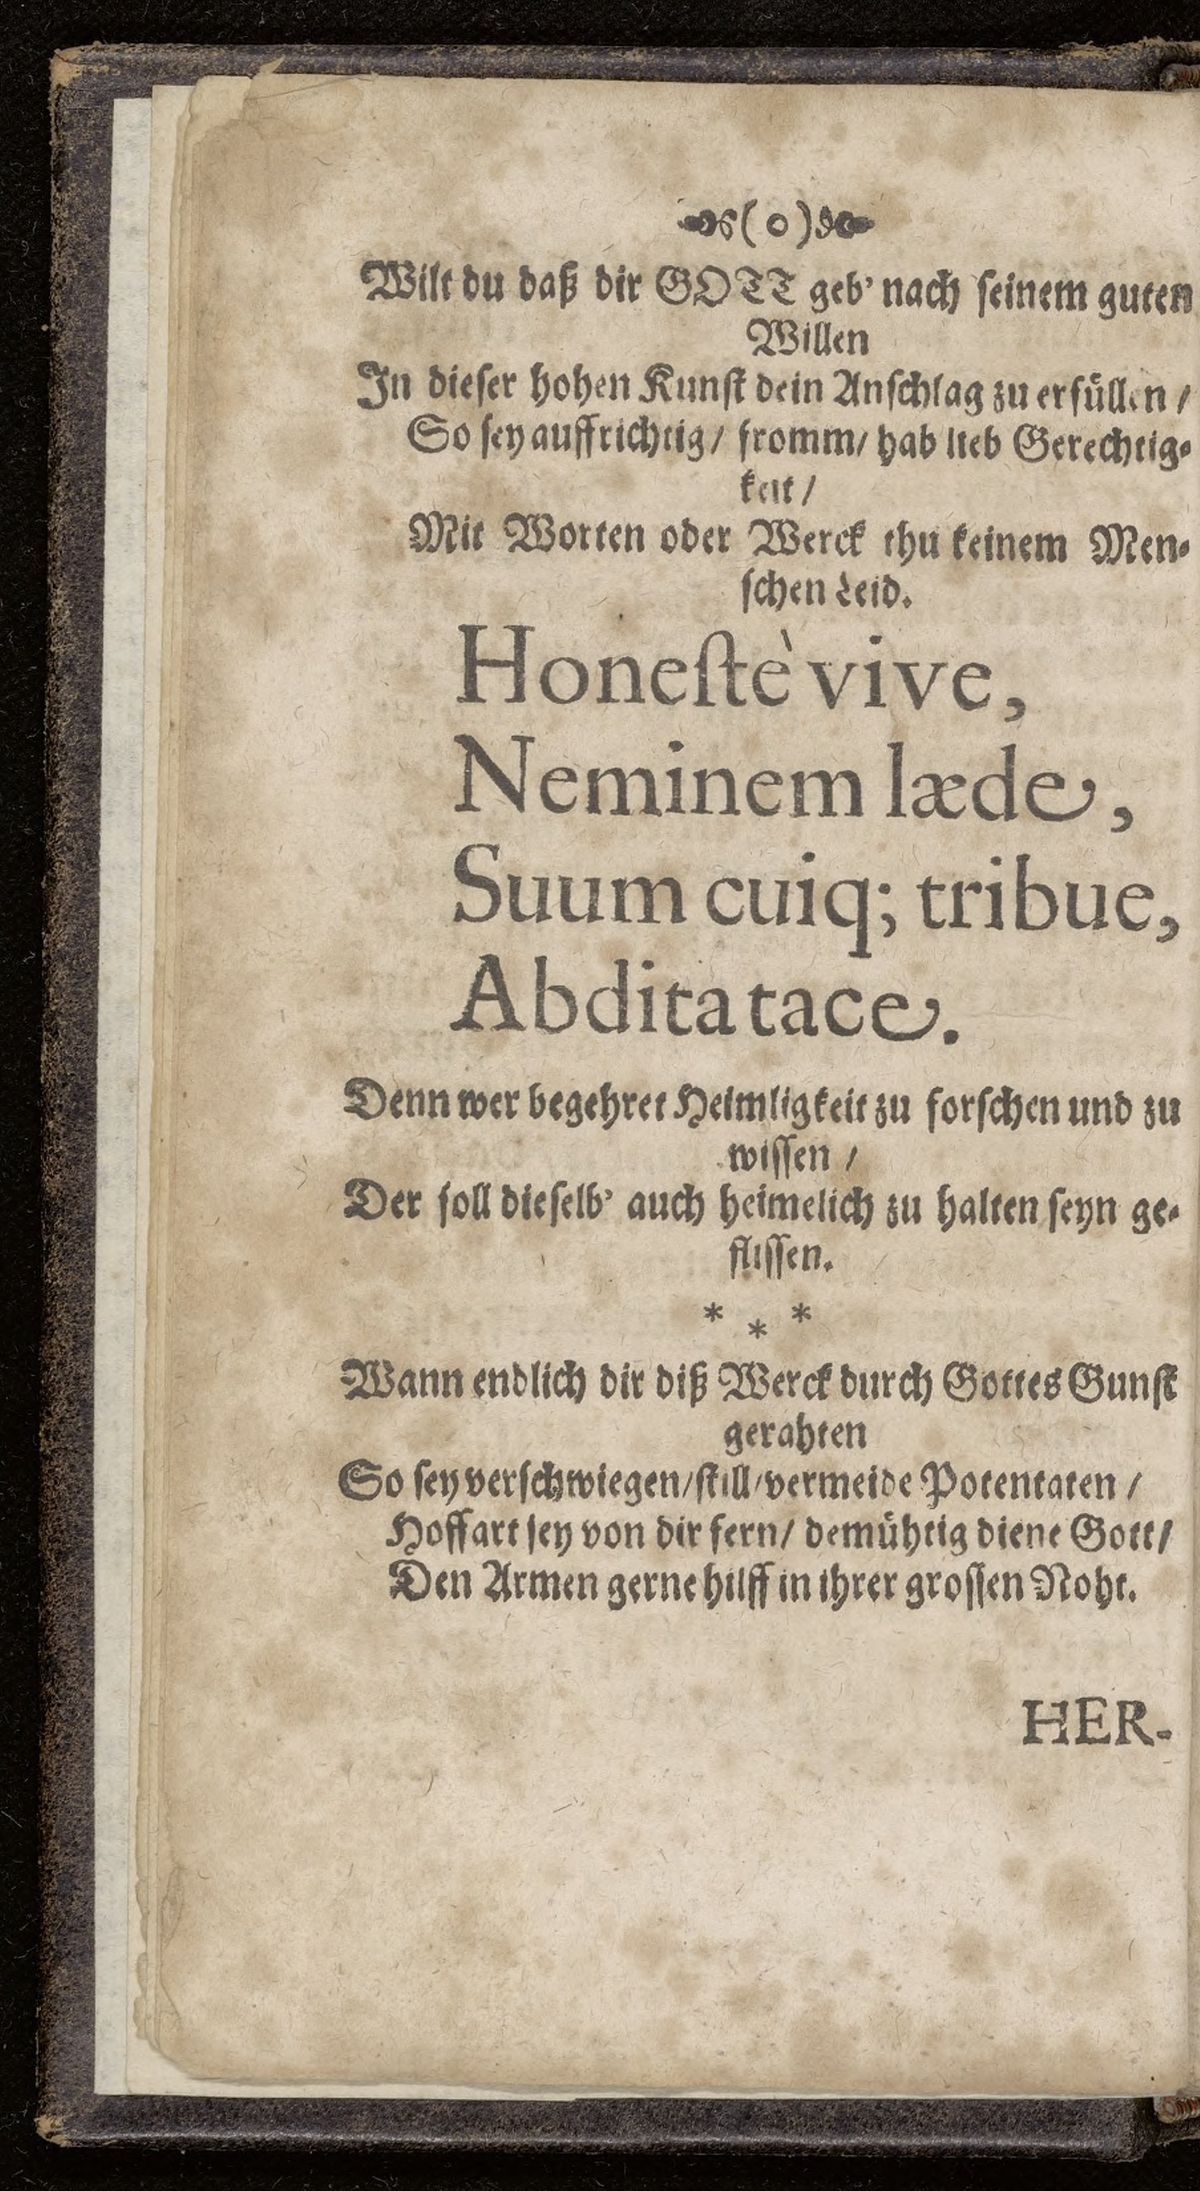 (o)
Wilt du daß dir GOTT geb' nach seinem guten
Willen
In dieser hohen Kunst dein Anschlag zu erfüllen /
So sey auffrichtig / fromm / hab lieb Gerechtig-
keit /
Mit Worten oder Werck thu keinem Men-
schen Leid.
Honestè vive,
Neminem læde,
Suum cuiq; tribue,
Abdita tace.
Denn wer begehret Heimligkeit zu forschen und zu
wissen /
Der soll dieselb' auch heimelich zu halten seyn ge-
flissen.
* * *
Wann endlich dir diß Werck durch Gottes Gunst
gerahten
So sey verschwiegen / still / vermeide Potentaten /
Hoffart sey von dir fern / demühtig diene Gott /
Den Armen gerne hilff in ihrer grossen Noht.
HER-